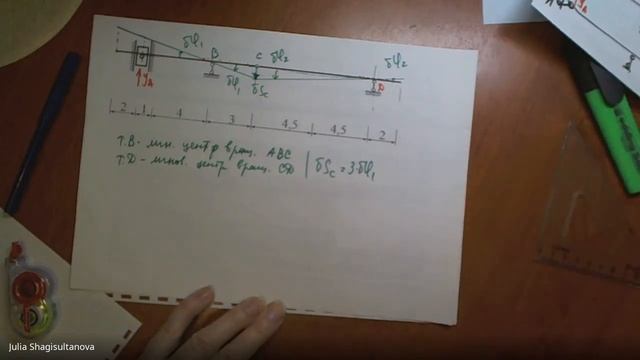 δφ₁
B
C
δφ₂
δφ₂
YA
δφ₁
δSc
D
2 1 4 3 4,5 4,5 2
т.В - мгн. центр вращ. АВС
т.D - мгнов. центр вращ. CD | δSc = 3·δφ₁
Julia Shagisultanova